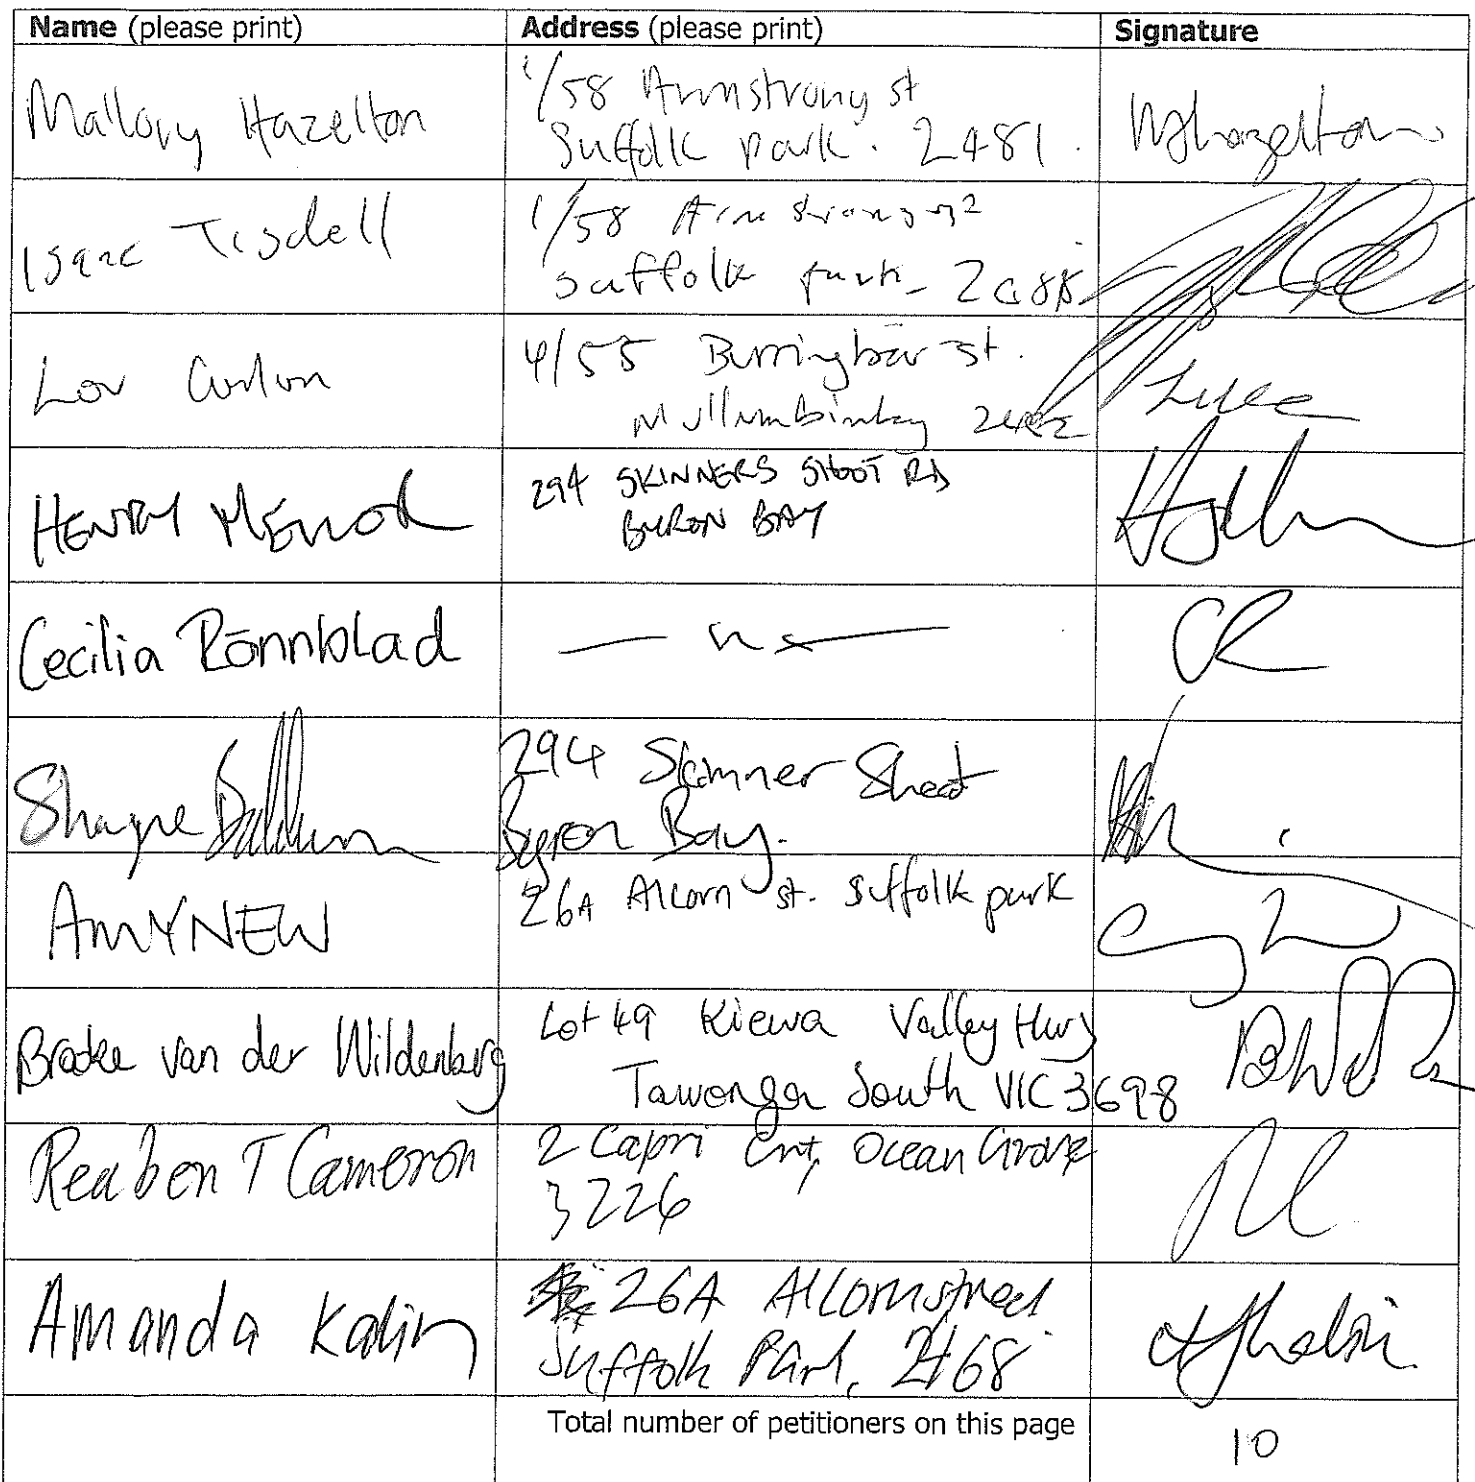 Name (please print) Address (please print) Signature
Mallory Hazelton
1/58 Armstrong st
Suffolk park. 2481.
Mhazelton
Isaac Tisdell
1/58 Armstrong
suffolk park
Lou
4/55 Burringbar st.
Mullumbimby
HENRY
294 SKINNERS SHOOT RD
BYRON BAY
Cecilia Rönnblad
CR
Shayne
294 Skinner Shoot
Byron Bay.
AMY NEW
26A Alcorn st. Suffolk park
Brooke van der Wildenberg
Lot 49 Kiewa Valley Hwy
Tawonga South VIC 3698
Reuben T Cameron
2 Capri Crt, Ocean Grove
3226
Amanda Kalin
26A Alcorn street
Suffolk Park, 2468
Total number of petitioners on this page 10